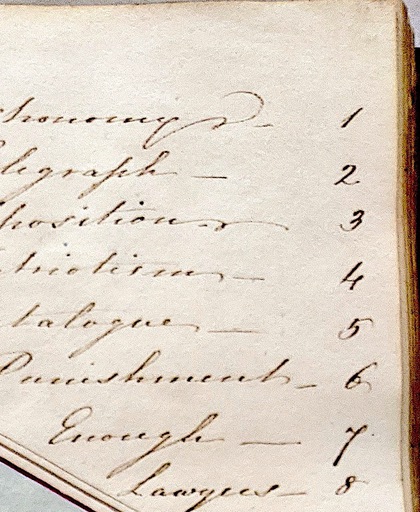 tronomy - 1
legraph - 2
position - 3
triotism - 4
talogue - 5
Punishment - 6
Enough - 7
Lawyers - 8